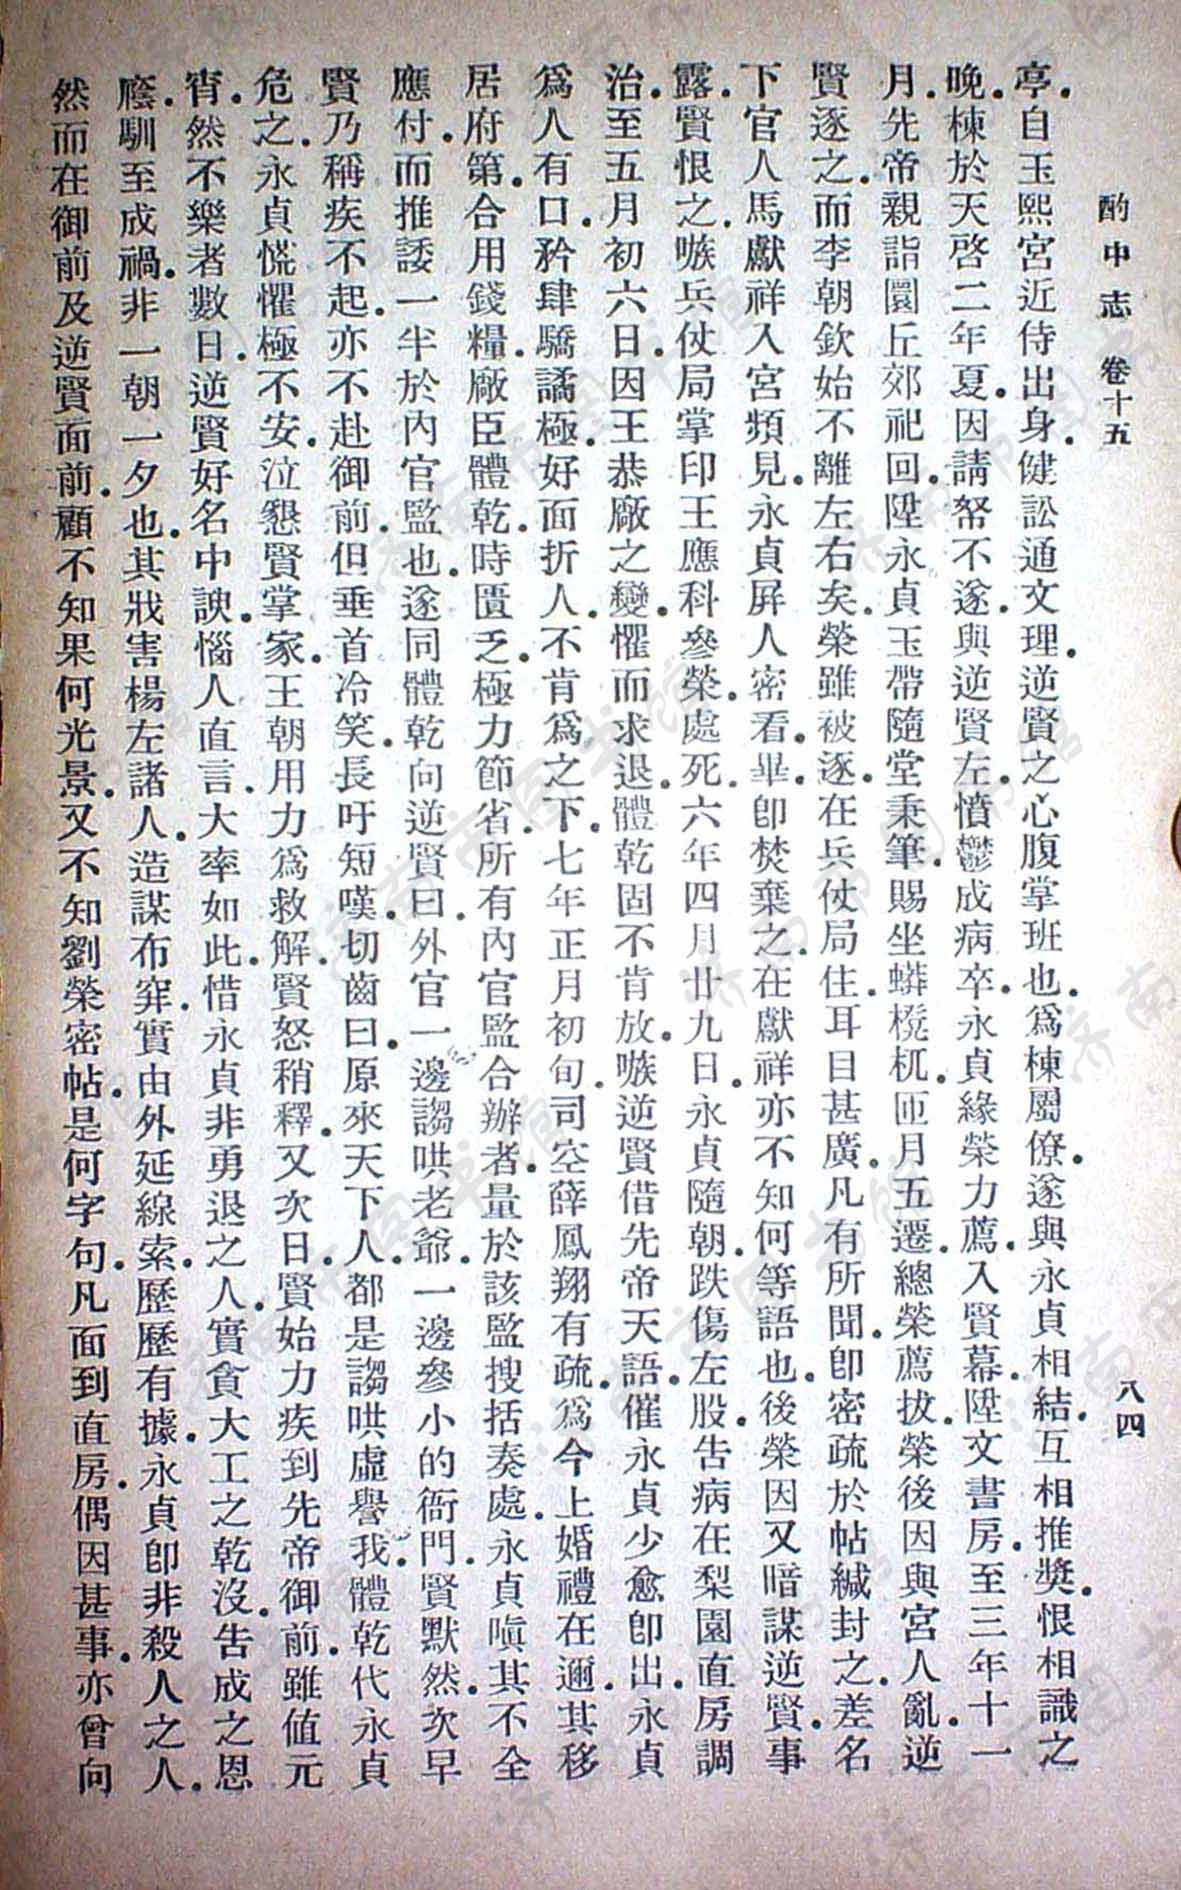 酌中志　卷十五　八四
亭。自玉熙宮近侍出身。健訟通文理。逆賢之心腹掌班也。爲棟屬僚。遂與永貞相結。互相推獎。恨相識之
晚。棟於天啓二年夏。因請帑不遂。與逆賢左。憤鬱成病卒。永貞緣榮力薦。入賢幕。陞文書房。至三年十一
月。先帝親詣圜丘郊祀回。陞永貞玉帶隨堂秉筆。賜坐蟒櫈杌。匝月五遷。總榮薦拔。榮後因與宮人亂。逆
賢逐之。而李朝欽始不離左右矣。榮雖被逐。在兵仗局住。耳目甚廣。凡有所聞。卽密疏於帖緘封之。差名
下官人馬獻祥入宮頻見。永貞屏人密看。畢。卽焚棄之。在獻祥亦不知何等語也。後榮因又暗謀逆賢。事
露。賢恨之。嗾兵仗局掌印王應科參榮。處死。六年四月廿九日。永貞隨朝。跌傷左股。告病在梨園直房調
治。至五月初六日。因王恭廠之變。懼而求退。體乾固不肯放。嗾逆賢借先帝天語。催永貞少愈卽出。永貞
爲人有口。矜肆驕譎極。好面折人。不肯爲之下。七年正月初旬。司空薛鳳翔有疏。爲今上婚禮在邇。其移
居府第。合用錢糧。廠臣體乾。時匱乏。極力節省。所有內官監合辦者。量於該監搜括奏處。永貞嗔其不全
應付。而推諉一半於內官監也。遂同體乾向逆賢曰。外官一邊謅哄老爺。一邊參小的衙門。賢默然。次早
賢乃稱疾不起。亦不赴御前。但垂首冷笑。長吁短嘆。切齒曰。原來天下人。都是謅哄虛譽我。體乾代永貞
危之。永貞慌懼極不安。泣懇賢掌家。王朝用力爲救解。賢怒稍釋。又次日。賢始力疾到先帝御前。雖值元
宵。然不樂者數日。逆賢好名中諛。惱人直言。大率如此。惜永貞非勇退之人。實貪大工之乾沒。告成之恩
廕。馴至成禍。非一朝一夕也。其戕害楊左諸人。造謀布穽。實由外延線索。歷歷有據。永貞卽非殺人之人。
然而在御前及逆賢面前。顧不知果何光景。又不知劉榮密帖。是何字句。凡面到直房。偶因甚事。亦曾向